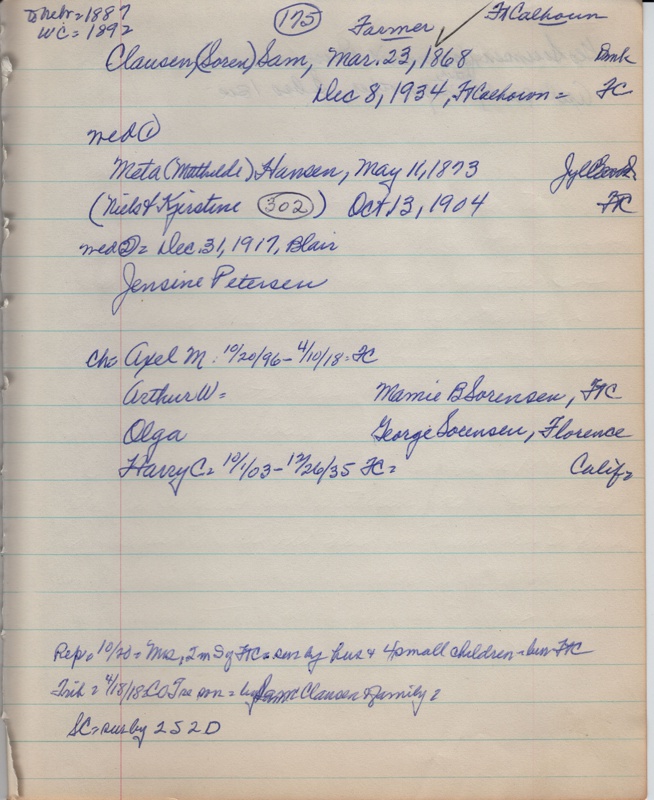 to Nebr = 1887
WC = 1892
175
Farmer
Ft Calhoun
Clausen (Soren) Sam, Mar. 23, 1868 Dmk
Dec 8, 1934, Ft Calhoun = FC
med ①
Meta (Mathilde) Hansen, May 11, 1873
(Niels & Kjirstine 302) Oct 13, 1904 FC
med ② = Dec. 31, 1917, Blair
Jensine Petersen
Ch = Axel M. 10/20/96 - 4/10/18 = FC
Arthur W = Mamie B Sorensen, FtC
Olga George Sorensen, Florence
Harry C = 10/1/03 - 12/26/35 FC = Calif =
Rep = 10/20 = Mrs, 2 m S of FtC = sur by hus & 4 small children = bur FtC
Trib = 4/18/18 = by Sam Clausen & family =
SC = sur by 2 S 2 D